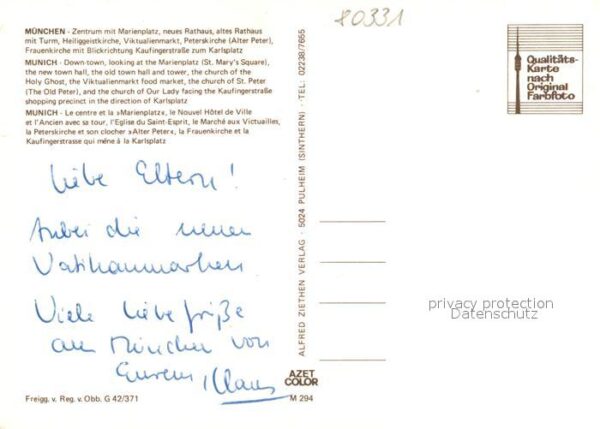 80331
MÜNCHEN - Zentrum mit Marienplatz, neues Rathaus, altes Rathaus
mit Turm, Heiliggeistkirche, Viktualienmarkt, Peterskirche (Alter Peter),
Frauenkirche mit Blickrichtung Kaufingerstraße zum Karlsplatz
MUNICH - Down-town, looking at the Marienplatz (St. Mary's Square),
the new town hall, the old town hall and tower, the church of the
Holy Ghost, the Viktualienmarkt food market, the church of St. Peter
(The Old Peter), and the church of Our Lady facing the Kaufingerstraße
shopping precinct in the direction of Karlsplatz
MUNICH - Le centre et la »Marienplatz«, le Nouvel Hôtel de Ville
et l'Ancien avec sa tour, l'Eglise du Saint-Esprit, le Marché aux Victuailles,
la Peterskirche et son clocher »Alter Peter«, la Frauenkirche et la
Kaufingerstrasse qui mène à la Karlsplatz
Liebe Eltern!
Anbei die neuen
Vatikanmarken
Viele liebe Grüße
aus München von
Eurem Klaus
Freigg. v. Reg. v. Obb. G 42/371
ALFRED ZIETHEN VERLAG - 5024 PULHEIM (SINTHERN) - TEL. 02238/7655
AZET
COLOR
M 294
Qualitäts-
Karte
nach
Original
Farbfoto
privacy protection
Datenschutz